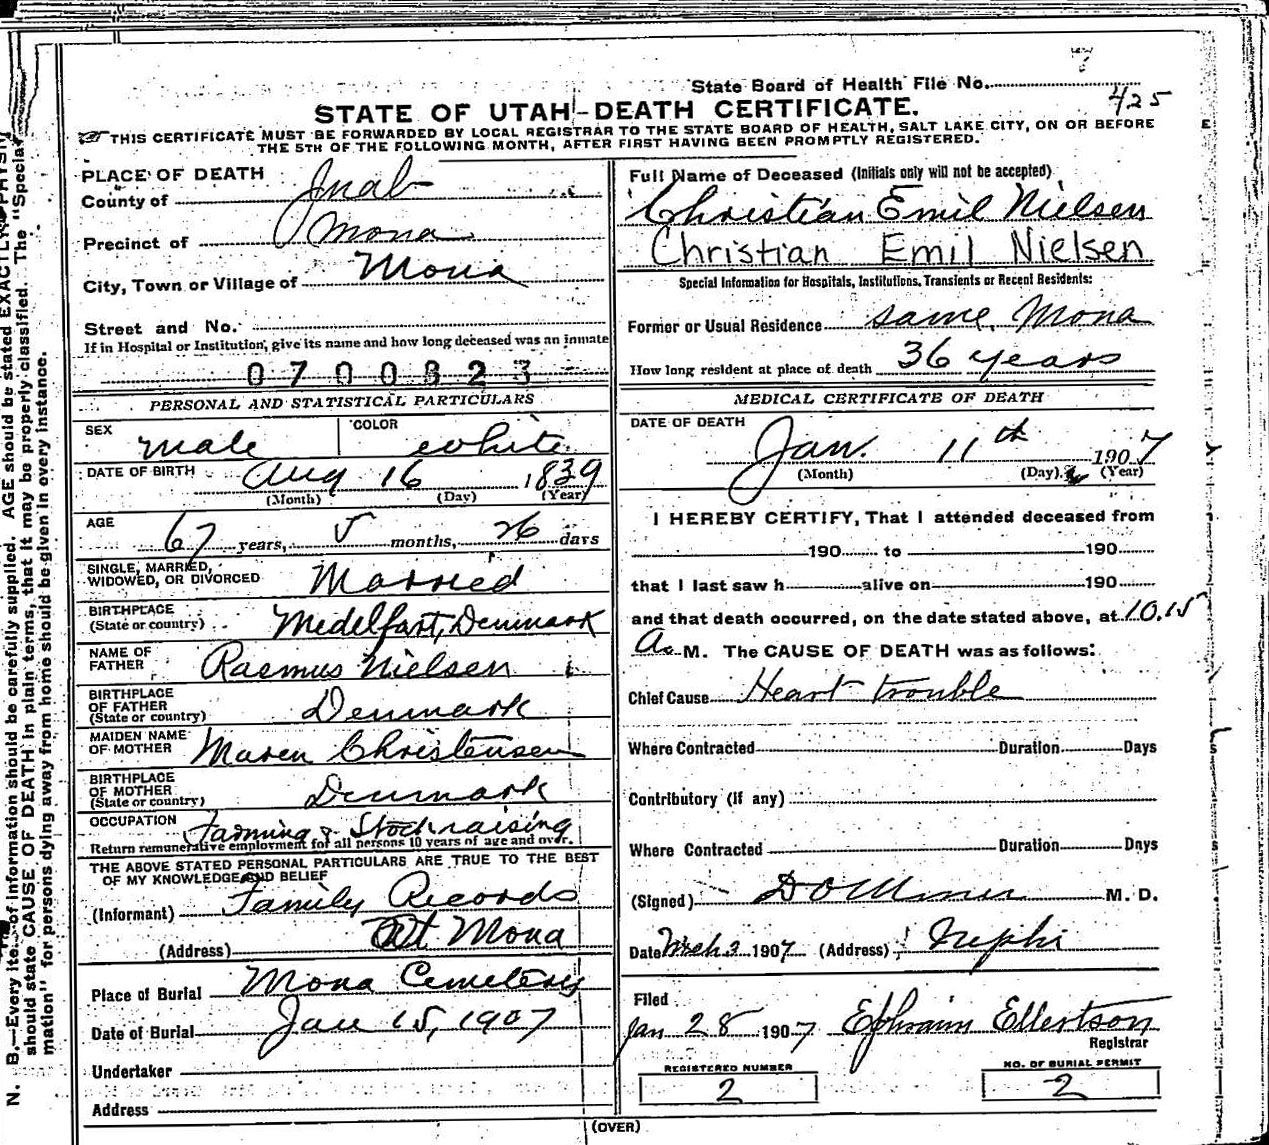 State Board of Health File No.
425
STATE OF UTAH-DEATH CERTIFICATE.
THIS CERTIFICATE MUST BE FORWARDED BY LOCAL REGISTRAR TO THE STATE BOARD OF HEALTH, SALT LAKE CITY, ON OR BEFORE
THE 5TH OF THE FOLLOWING MONTH, AFTER FIRST HAVING BEEN PROMPTLY REGISTERED.
PLACE OF DEATH
County of Juab
Precinct of Mona
City, Town or Village of Mona
Street and No.
If in Hospital or Institution, give its name and how long deceased was an inmate
0700823
PERSONAL AND STATISTICAL PARTICULARS
SEX male COLOR white
DATE OF BIRTH Aug 16 1839
(Month) (Day) (Year)
AGE 67 years, 5 months, 26 days
SINGLE, MARRIED,
WIDOWED, OR DIVORCED Married
BIRTHPLACE
(State or country) Medelfart, Denmark
NAME OF
FATHER Rasmus Nielsen
BIRTHPLACE
OF FATHER
(State or country) Denmark
MAIDEN NAME
OF MOTHER Maren Christensen
BIRTHPLACE
OF MOTHER
(State or country) Denmark
OCCUPATION Farming & Stockraising
Return remunerative employment for all persons 10 years of age and over.
THE ABOVE STATED PERSONAL PARTICULARS ARE TRUE TO THE BEST
OF MY KNOWLEDGE AND BELIEF
(Informant) Family Records
(Address) At Mona
Place of Burial Mona Cemetery
Date of Burial Jan 15, 1907
Undertaker
Address
Full Name of Deceased (Initials only will not be accepted)
Christian Emil Nielsen
Christian Emil Nielsen
Special Information for Hospitals, Institutions, Transients or Recent Residents:
Former or Usual Residence same Mona
How long resident at place of death 36 years
MEDICAL CERTIFICATE OF DEATH
DATE OF DEATH
Jan. 11th 1907
(Month) (Day) (Year)
I HEREBY CERTIFY, That I attended deceased from
190 to 190
that I last saw h alive on 190
and that death occurred, on the date stated above, at 10.15
A. M. The CAUSE OF DEATH was as follows:
Chief Cause Heart trouble
Where Contracted Duration Days
Contributory (if any)
Where Contracted Duration Days
(Signed) M. D.
Date Mch 3 1907 (Address) Nephi
Filed
Jan 28 1907 Ephraim Ellertson
Registrar
REGISTERED NUMBER
2
NO. OF BURIAL PERMIT
2
(OVER)
N. B.—Every item of information should be carefully supplied. AGE should be stated EXACTLY. PHYSI
should state CAUSE OF DEATH in plain terms, that it may be properly classified. The "Special
mation" for persons dying away from home should be given in every instance.